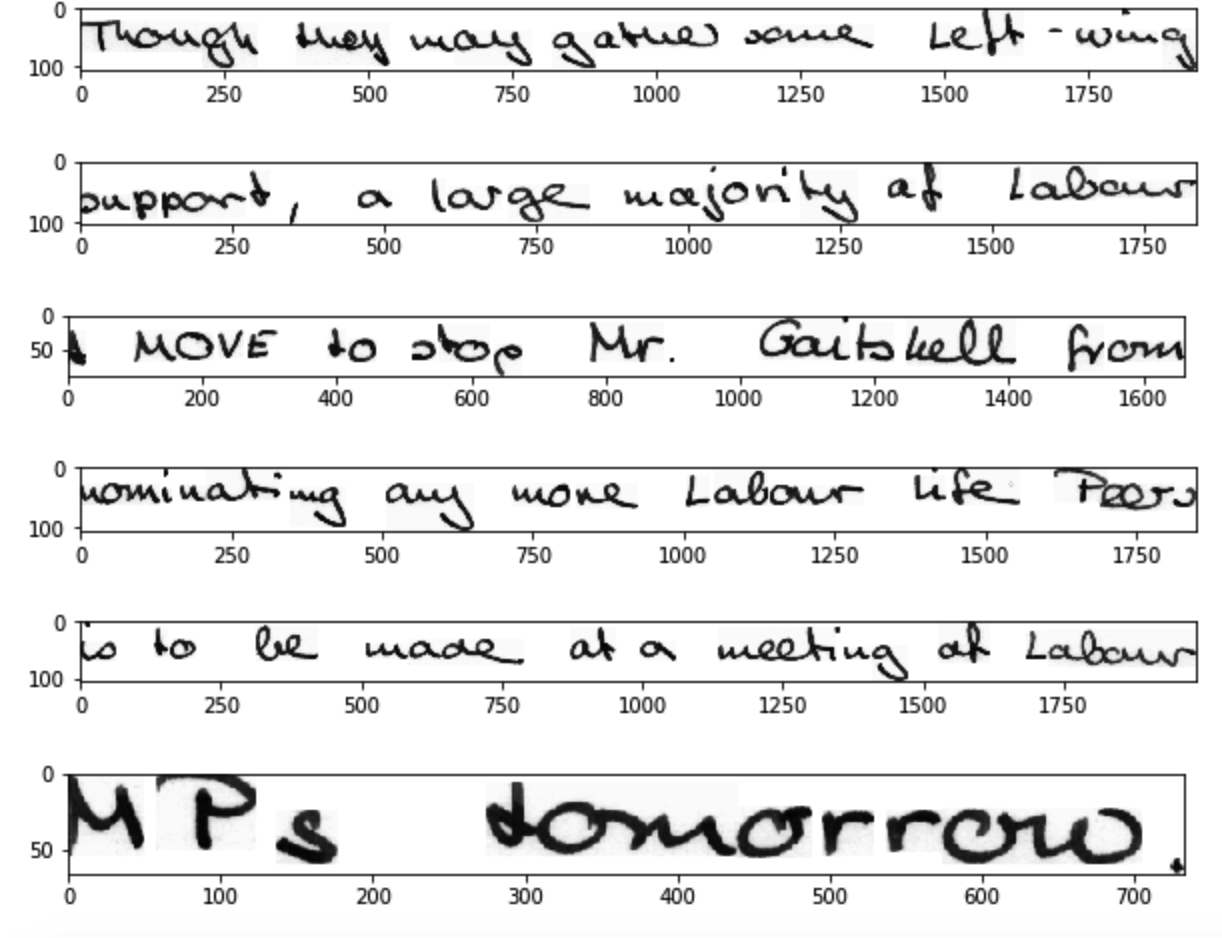 0
Though they may gather some Left-wing
100
0 250 500 750 1000 1250 1500 1750
0
support, a large majority of Labour
100
0 250 500 750 1000 1250 1500 1750
0
A MOVE to stop Mr. Gaitskell from
50
0 200 400 600 800 1000 1200 1400 1600
0
nominating any more Labour life Peers
100
0 250 500 750 1000 1250 1500 1750
0
is to be made at a meeting of Labour
100
0 250 500 750 1000 1250 1500 1750
0
M Ps tomorrow.
50
0 100 200 300 400 500 600 700